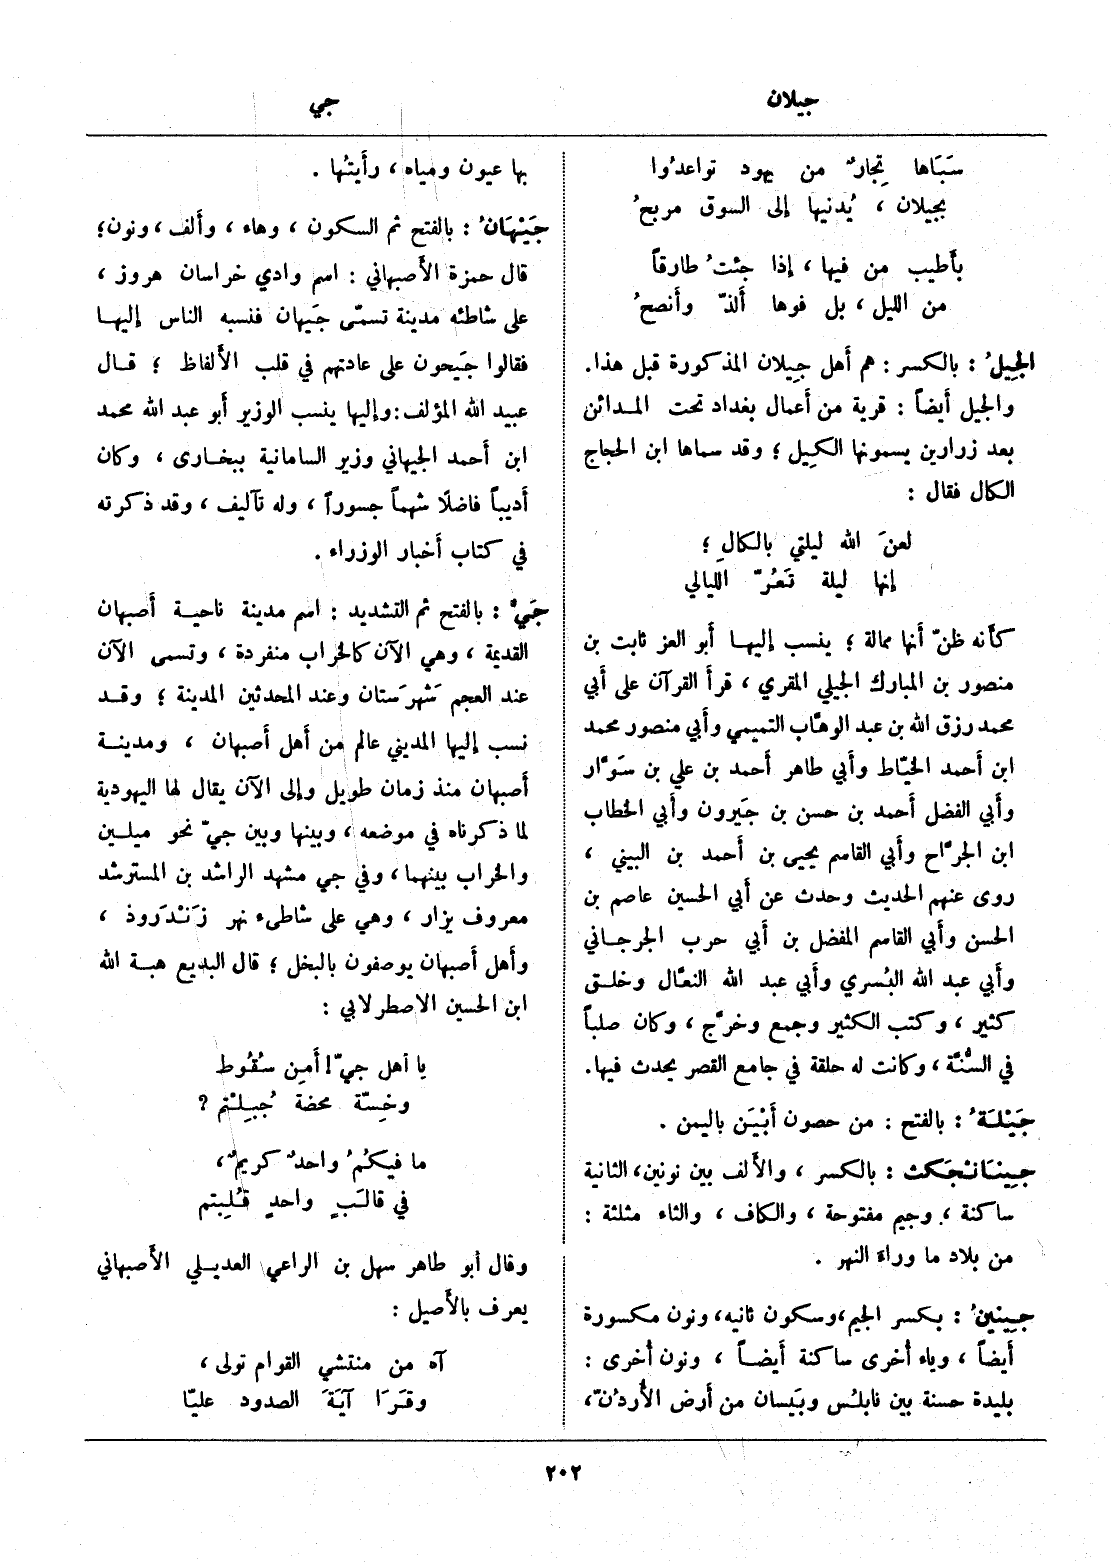 جيلان
جي
سَبَاها تِجارٌ من يهود تواعدُوا
بجيلان ، يُدنيها إلى السوق مربحُ
بأطيب من فيها ، إذا جئتُ طارقاً
من الليل ، بل فوها أَلذّ وأَنصحُ
الجِيلُ : بالكسر : هم أهل جِيلان المذكورة قبل هذا.
والجيل أيضاً : قرية من أعمال بغداد تحت المدائن
بعد زرارين يسمونها الكِيل ؛ وقد سماها ابن الحجاج
الكال فقال :
لعنَ الله ليلتي بالكالِ ؛
إنها ليلة تَعُرّ الليالي
كأنه ظنّ أنها ممالة ؛ ينسب إليها أبو العز ثابت بن
منصور بن المبارك الجيلي المقري ، قرأ القرآن على أبي
محمد رزق الله بن عبد الوهّاب التميمي وأبي منصور محمد
ابن أحمد الخيّاط وأبي طاهر أحمد بن علي بن سَوّار
وأبي الفضل أحمد بن حسن بن جَيرون وأبي الخطاب
ابن الجرّاح وأبي القاسم يحيى بن أحمد بن البيني ،
روى عنهم الحديث وحدث عن أبي الحسين عاصم بن
الحسن وأبي القاسم المفضل بن أبي حرب الجرجاني
وأبي عبد الله البُسري وأبي عبد الله النعّال وخلق
كثير ، وكتب الكثير وجمع وخرّج ، وكان صلباً
في السُّنَّة ، وكانت له حلقة في جامع القصر يحدث فيها.
جَيْلَةُ : بالفتح : من حصون أَبْيَن باليمن .
جِينَانْجَكَث : بالكسر ، والألف بين نونين، الثانية
ساكنة ، وجيم مفتوحة ، والكاف ، والثاء مثلثة :
من بلاد ما وراء النهر .
جِينِينُ : بكسر الجيم،وسكون ثانيه، ونون مكسورة
أيضاً ، وياء أُخرى ساكنة أيضاً ، ونون أُخرى :
بليدة حسنة بين نابلس وبَيسان من أرض الأُردُنّ،
بها عيون ومياه ، رأَيتُها .
جَيْهَانُ : بالفتح ثم السكون ، وهاء ، وأَلف ، ونون؛
قال حمزة الأَصبهاني : اسم وادي خراسان هروز ،
على شاطئه مدينة تسمّى جَيهان فنسبه الناس إليها
فقالوا جَيحون على عادتهم في قلب الأَلفاظ ؛ قال
عبيد الله المؤلف:وإليها ينسب الوزير أبو عبد الله محمد
ابن أحمد الجيهاني وزير السامانية ببخارى ، وكان
أديباً فاضلًا شهماً جسوراً ، وله تآليف ، وقد ذكرته
في كتاب أخبار الوزراء .
جَيّ : بالفتح ثم التشديد : اسم مدينة ناحية أَصبهان
القديمة ، وهي الآن كالخراب منفردة ، وتسمى الآن
عند العجم شَهرَستان وعند المحدثين المدينة ؛ وقد
نسب إليها المديني عالم من أهل أصبهان ، ومدينة
أَصبهان منذ زمان طويل وإلى الآن يقال لها اليهودية
لما ذكرناه في موضعه ، وبينها وبين جيّ نحو ميلين
والخراب بينهما ، وفي جي مشهد الراشد بن المسترشد
معروف يزار ، وهي على شاطىء نهر زَنْدَرُوذ ،
وأهل أصبهان يوصفون بالبخل ؛ قال البديع هبة الله
ابن الحسين الاصطرلابي :
يا أهل جيّ! أَمِن سقُوط
وخِسّة محضة جُبِلْتم ؟
ما فيكُمُ واحدٌ كريمٌ،
في قالَبٍ واحدٍ قُلِبتم
وقال أبو طاهر سهل بن الراعي العديلي الأَصبهاني
يعرف بالأَصيل :
آه من منتشي القوام تولى ،
وقَرَا آيَةَ الصدود عليّا
٢٠٢